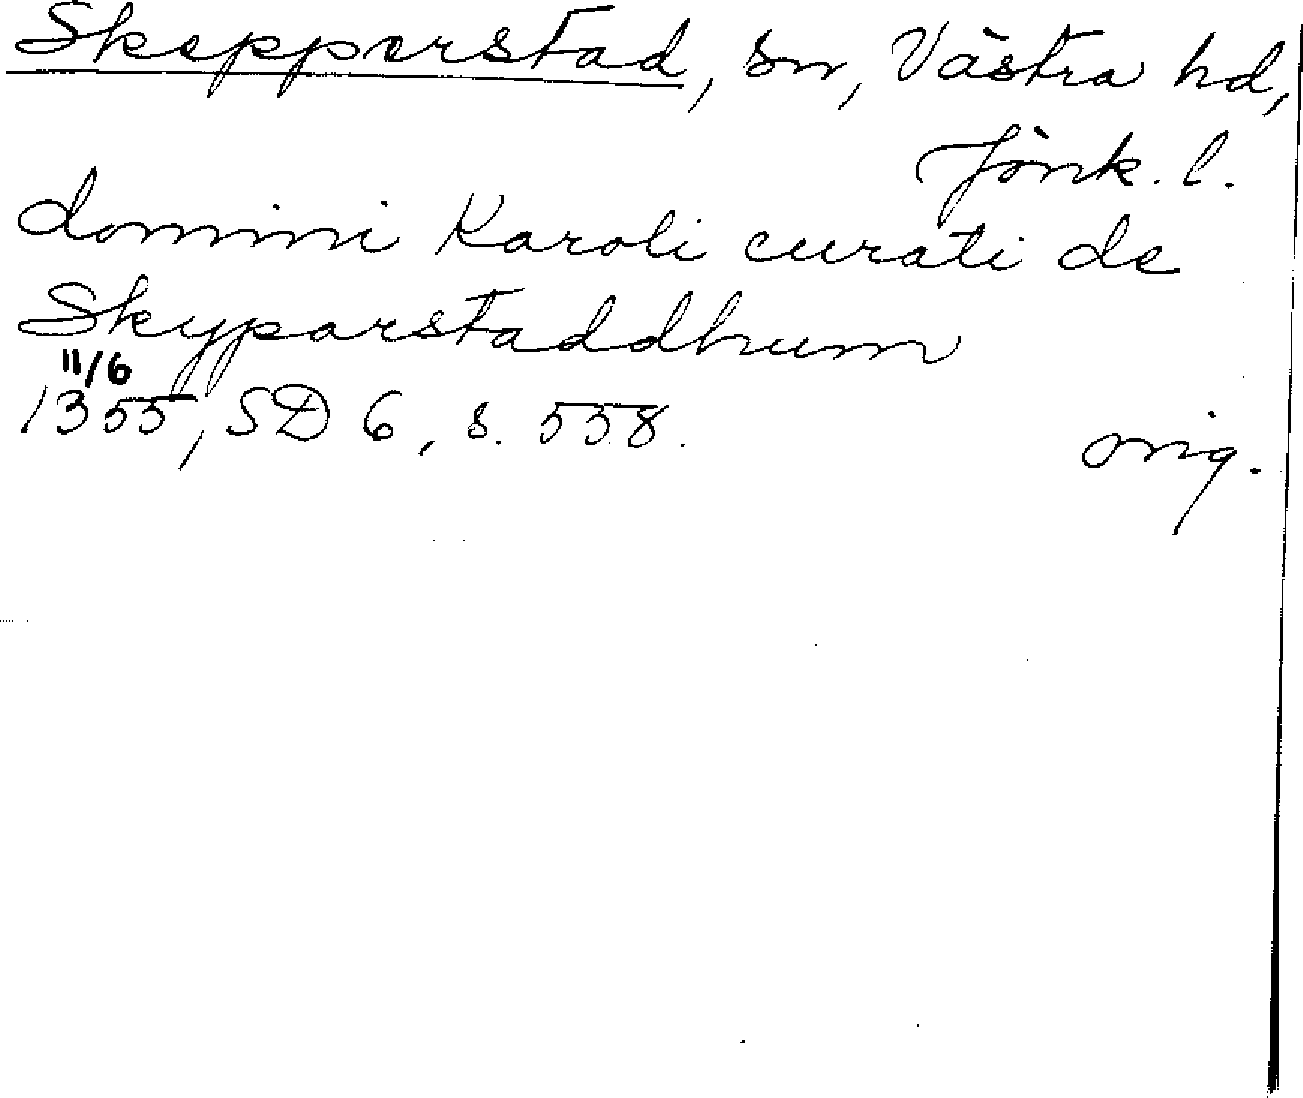 Skepperstad, sn, Västra hd,
Jönk. l.
domini Karoli curati de
Skyparstaddhum
11/6
1355, SD 6, s. 558.
orig.